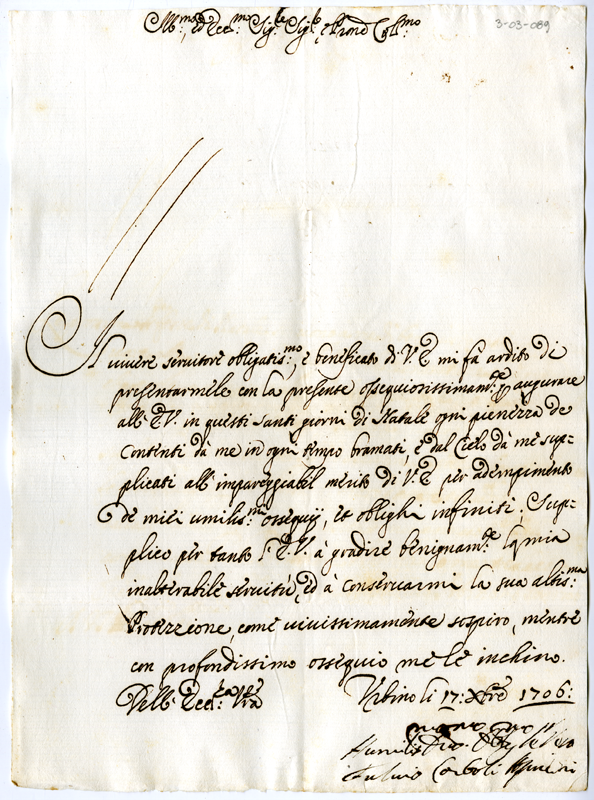 Ill.mo, ed Ecc.mo Sig.re Sig.re, e Prone Col.mo
3-03-089
Il vivere servitore obligatis.mo, e beneficato di V. E mi fà ardito di
presentarmele con la presente ossequiosissimam.te p augurare
all' E.V. in questi santi giorni di Natale ogni pienezza de
Contenti dà me in ogni tempo bramati, e dal Cielo dà me sup-
plicati all' impareggiabil merito di V. E per adempimento
de miei umilis.mi ossequij, et oblighi infiniti; Sup-
plico per tanto l' E. V. à gradire benignam.te la mia
inalterabile servitù, ed à conservarmi la sua altis.ma
Protezzione, come vivissimamente sospiro, mentre
con profondissimo ossequio me le inchino.
Dell' Ecc.za Vra
Urbino li 17: Xbre 1706:
Humilis.mo Dev.mo Obl.mo
Fulvio Corboli